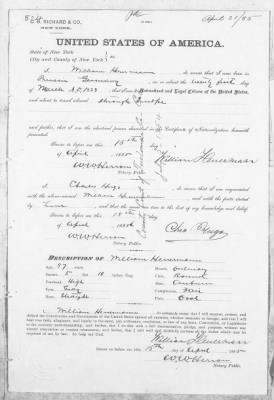 C.B. RICHARD & CO.,
NEW YORK.
April 20/85
UNITED STATES OF AMERICA.
State of New York
City and County of New York
I, William Heuermann do swear that I was born in
Germany on or about the twenty first day
of March A.D. 1838, that I am a Naturalized and Loyal Citizen of the United States,
and about to travel abroad through Europe
and further, that I am the identical person described in the Certificate of Naturalization herewith
presented.
Sworn to before me this 15th
of April 1885
William Heuermann
W W Herron
Notary Public.
I, Charles do swear that I am acquainted
with the above-named William and with the facts stated
by him and that the same are true to the best of my knowledge and belief.
Sworn to before me this 18th day
of April 1885
Chas
W W Herron
Notary Public.
DESCRIPTION OF William Heuermann
Age, 47 years
Mouth, ordinary
Stature, 5 feet 10 inches Eng.
Chin, Round
Forehead, High
Hair, Auburn
Eyes, Gray
Complexion, Fair
Nose, Straight
Face, Oval
I, William Heuermann do solemnly swear that I will support, protect, and
defend the Constitution and Government of the United States against all enemies, whether domestic or foreign; and that I will
bear true faith, allegiance, and loyalty to the same, any ordinance, resolution, or law of any State, Convention, or Legislature
to the contrary notwithstanding; and further, that I do this with a full determination, pledge, and purpose, without any
mental reservation or evasion whatsoever; and further, that I will well and faithfully perform all the duties which may be
required of me by law. So help me God.
William Heuermann
Sworn to before me this 15th day of April 1885
W W Herron
Notary Public.